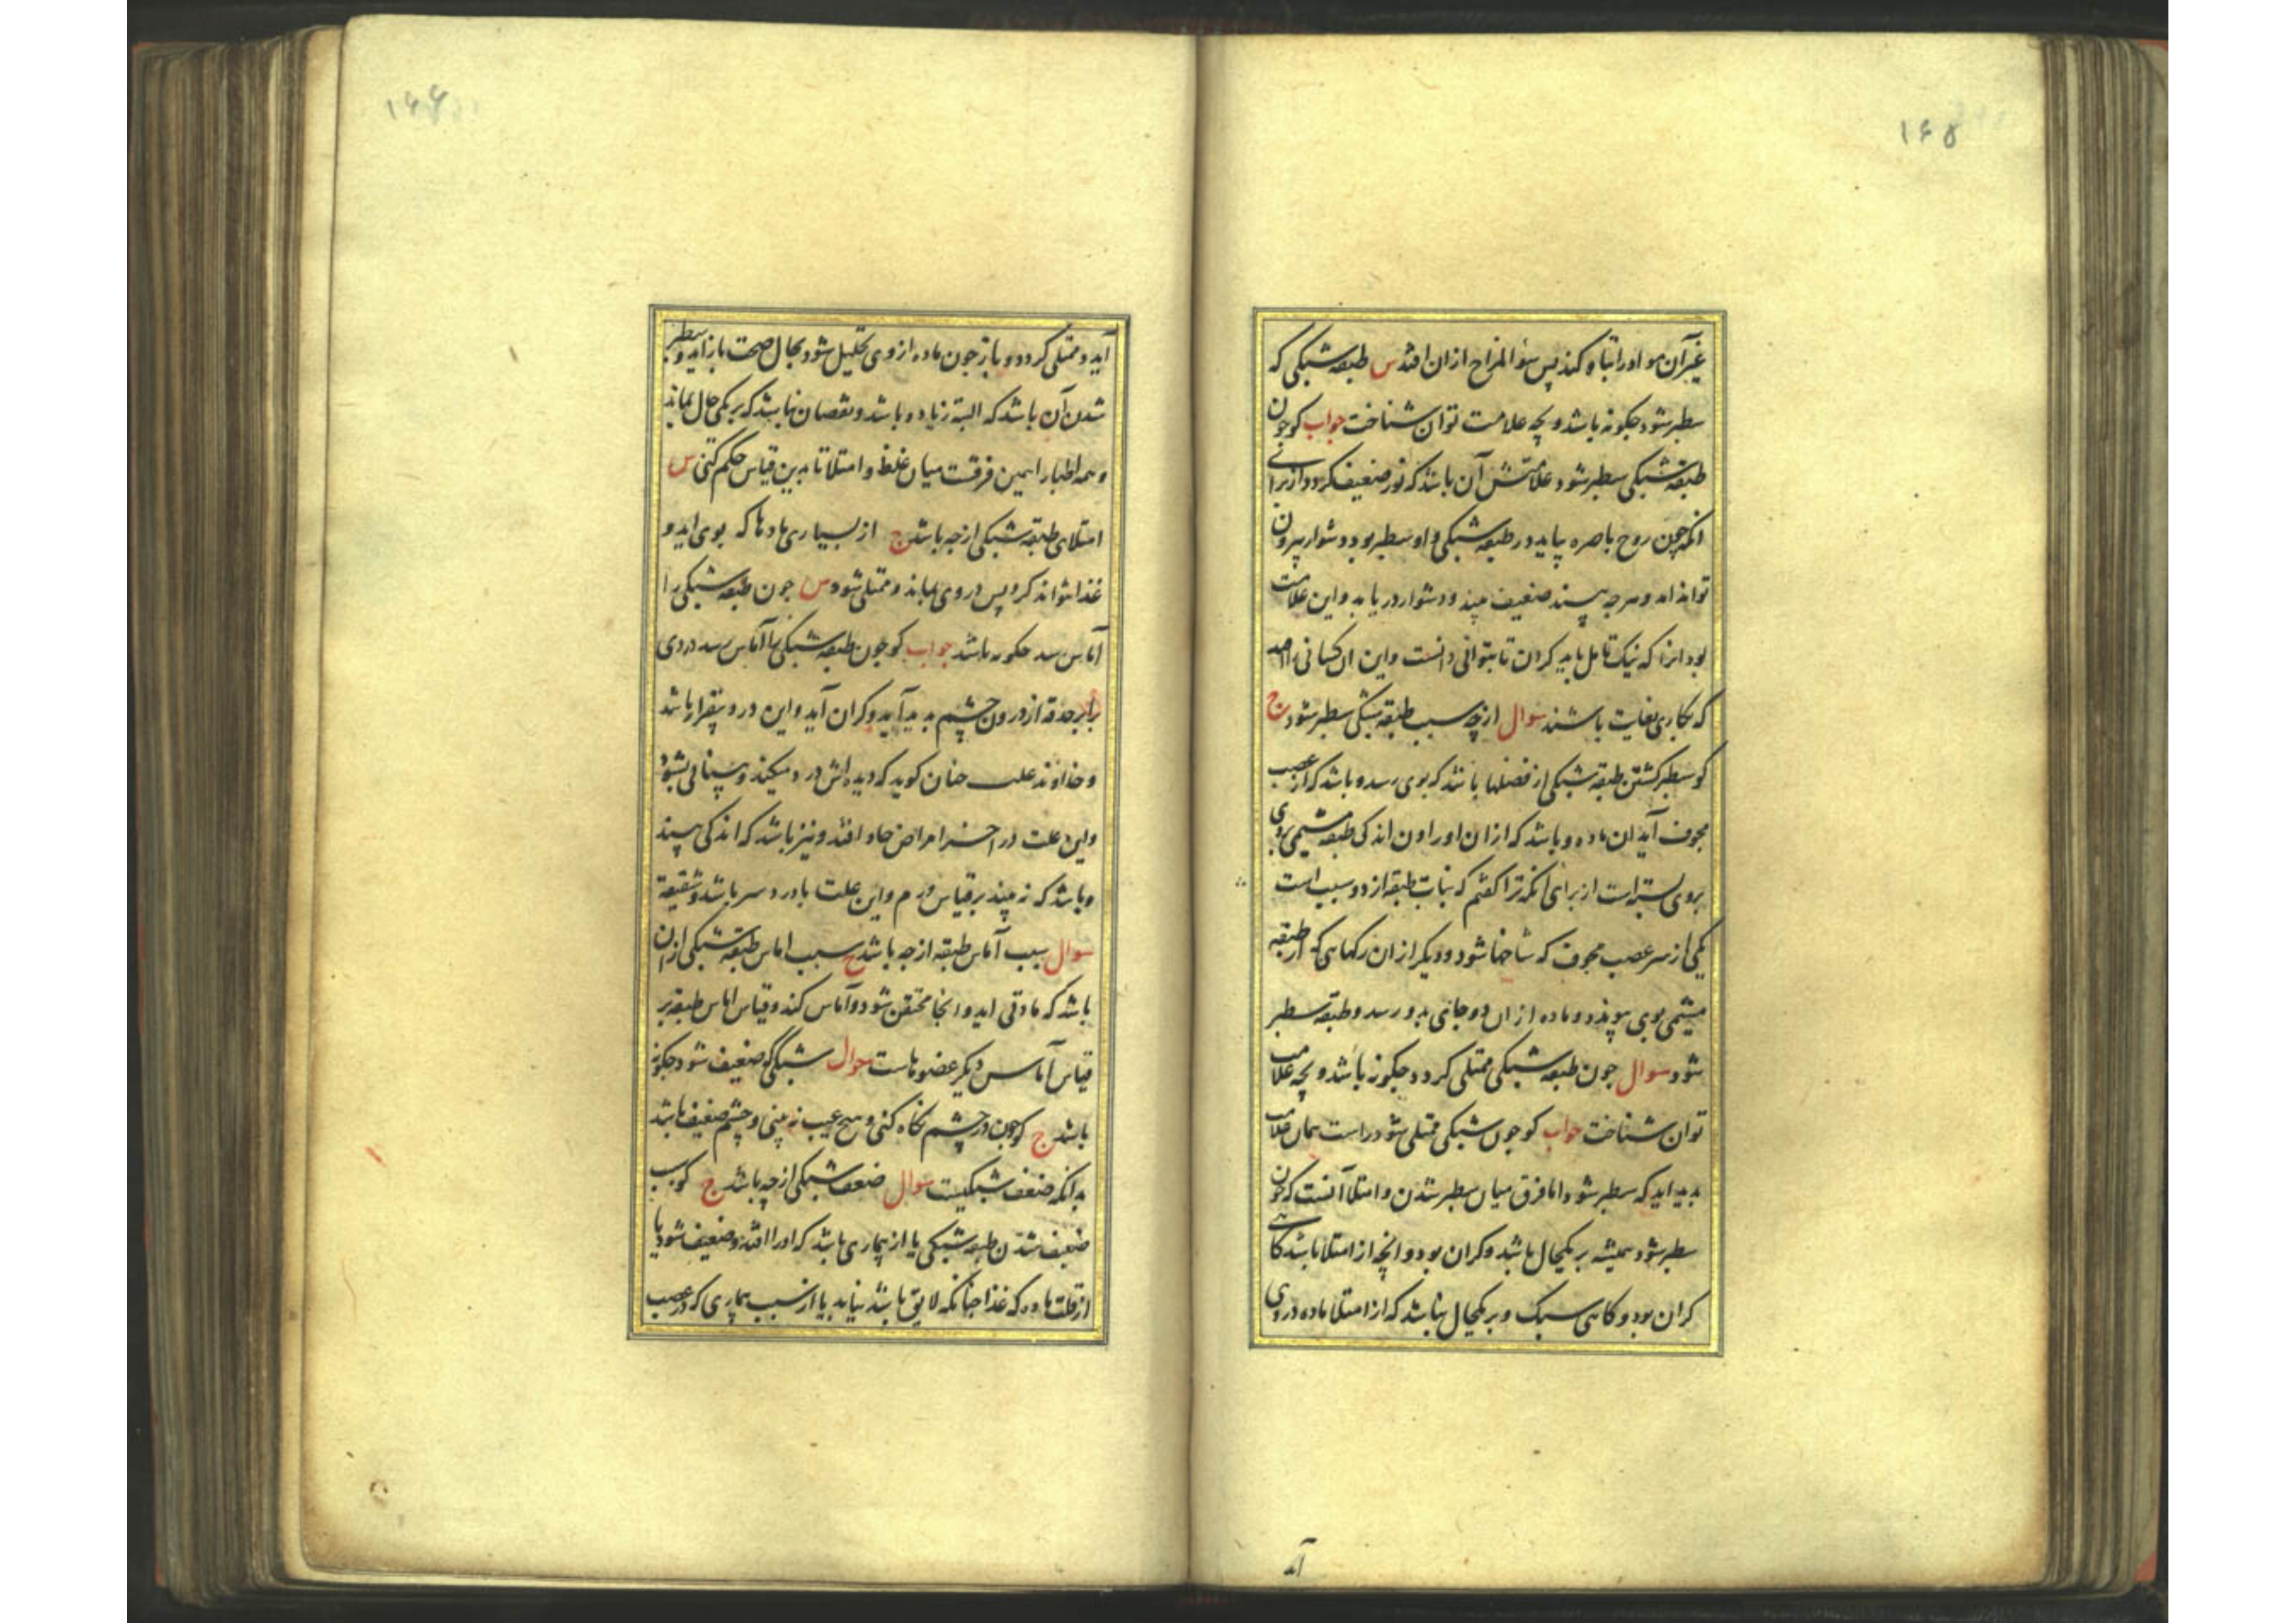 ۱۶۵
غیر آن هوا و را تباه کند پس سؤ المزاج ازان افتد س طبقه شبکی که
سطبر شود چکونه باشد و بچه علامت توان شناخت جواب کو چون
طبقه شبکی سطبر شود علامتش آن باشد که نور ضعیف کردد از برای
انکه چون روح باصره بیاید در طبقه شبکی و او سطبر بود دشوار بیرون
تواند امد و هرچه بیند ضعیف بیند و دشوار دریابد و این علامت
بود انرا که نیک تامل باید کردن تا بتوانی دانست و این ان کسانی را
که بکاری بغایت باشند سوال از چه سبب طبقه شبکی سطبر شود ج
کو سطبر کشتن طبقه شبکی از فضلها باشد که بوی رسد و باشد که از عصب
مجوف آید ان ماده و باشد که ازان اوراون اندکی طبقه مشیمی بروی
بروی بسته است از برای انکه ترا کفتم که نبات طبقه از دو سبب است
یکی از سر عصب مجوف که شاخها شود و دیکر ازان رکهایی که از طبقه
مشیمی بوی پیوندد و ماده ازان دو جانی بدو رسد و طبقه سطبر
شود سوال جون طبقه شبکی ممتلی کردد چکونه باشد و بچه علامت
توان شناخت جواب کو جون شبکی ممتلی شود راست همان علامت
بدید اید که سطبر شود اما فرق میان سطبر شدن و امتلا آنست که چون
سطبر شود همیشه بر یکحال باشد و کران بود و انچه از امتلا باشد کاهی
کران بود و کاهی سبک و بر یکحال نباشد که از امتلا ماده در وی
آید
۱۶۶
آید و ممتلی کردد و باز جون ماده از وی تحلیل شود بحال صحت باز اید و سطبر
شدن آن باشد که البته زیاده باشد و نقصان نباشد که بر یکی حال بماند
و همه اطبا را همین فرقست میان غلظ و امتلا تا بدین قیاس حکم کنی س
امتلای طبقه شبکی از چه باشد ج از بسیاری مادها که بوی اید و
غذا نتواند کرد پس در وی بماند و ممتلی شود س جون طبقه شبکی را
آماس رسد چکونه باشد جواب کو چون طبقه شبکی را آماس رسد دردی
برابر حدقه از درون چشم بدید آید و کران آید و این درد بیقرار باشد
و خداوند علت چنان کوید که دیده اش درد میکند و بینائی بشود
و این علت در اخر امراض حاد افتد و نیز باشد که اندکی بیند
و باشد که نه بیند بر قیاس ورم و این علت با درد سر باشد و شقیقه
سوال سبب آماس طبقه از چه باشد ج سبب اماس طبقه شبکی ازان
باشد که مادتی اید و انجا محتقن شود و آماس کند و قیاس اماس طبقه بر
قیاس آماس دیکر عضوهاست سوال شبکی که ضعیف شود چکونه
باشد ج کو چون در چشم نکاه کنی و هیچ عیب نه بینی و چشم ضعیف باشد
بدانکه ضعف شبکیست سوال ضعف شبکی از چه باشد ج کو سبب
ضعیف شدن طبقه شبکی یا از بیماری باشد که اورا افتد و ضعیف شود یا
از قلت ماده که غذا چنانکه لایق باشد نیابد یا از سبب بیماری که در عصب